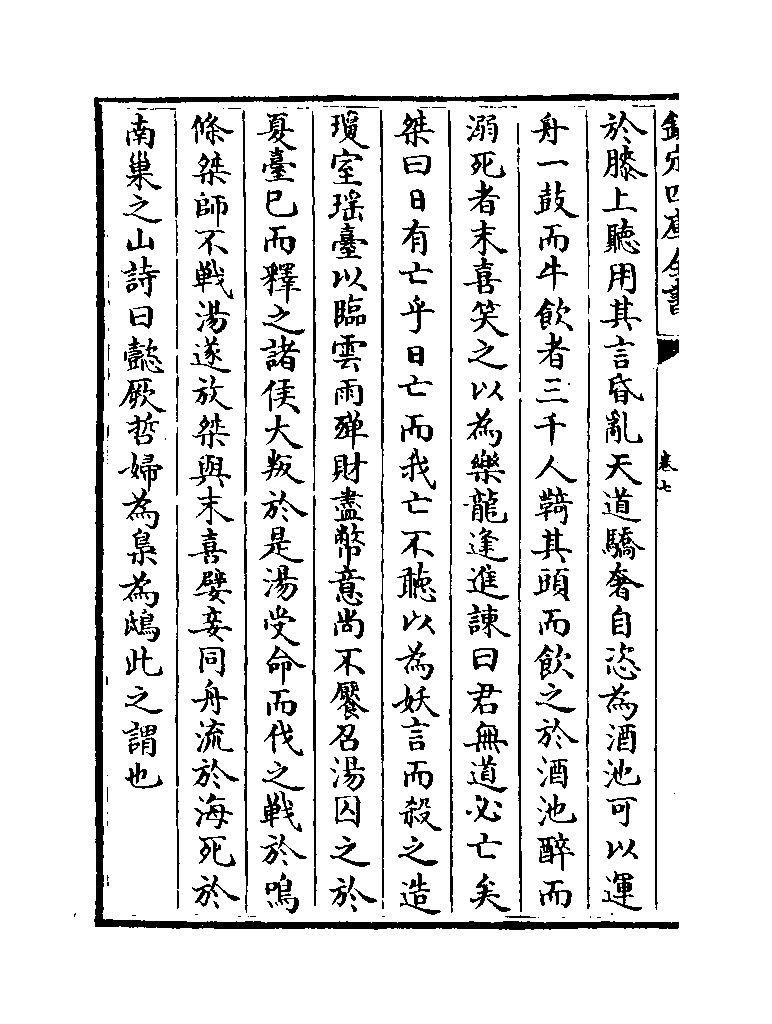 欽定四庫全書
卷七
於膝上聽用其言昏亂天道驕奢自恣為酒池可以運
舟一鼓而牛飲者三千人鞿其頭而飲之於酒池醉而
溺死者末喜笑之以為樂龍逢進諫曰君無道必亡矣
桀曰日有亡乎日亡而我亡不聽以為妖言而殺之造
瓊室瑶臺以臨雲雨殫財盡幣意尚不饜召湯囚之於
夏臺已而釋之諸侯大叛於是湯受命而伐之戰於鳴
條桀師不戰湯遂放桀與末喜嬖妾同舟流於海死於
南巢之山詩曰懿厥哲婦為梟為鴟此之謂也